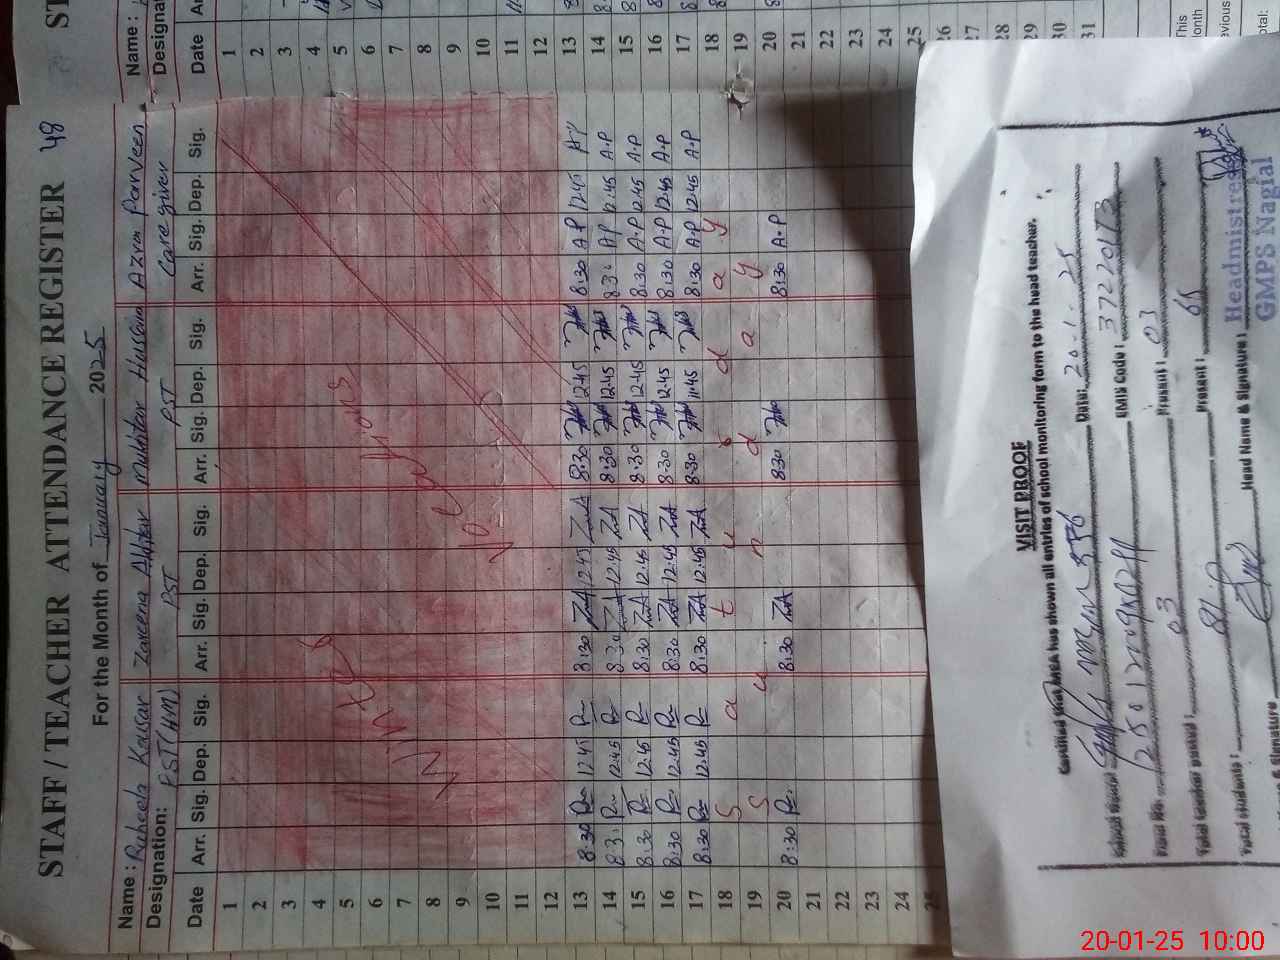 STAFF / TEACHER ATTENDANCE REGISTER 48
For the Month of January 2025
Name : Raheela Kausar Zareena Akhtar Mukhtar Hussain Azra Parveen
Designation: PST (HM) PST PST Care giver
Date Arr. Sig. Dep. Sig. Arr. Sig. Dep. Sig. Arr. Sig. Dep. Sig. Arr. Sig. Dep. Sig.
1
2
3
4
5
6
7
8
9
10
11
12
Winter Vacations
13 8:30 12:45 8:30 ZA 12:45 ZA 8:30 12:45 8:30 AP 12:45 AP
14 8:30 12:45 8:30 ZA 12:45 ZA 8:30 12:45 8:30 AP 12:45 A.P
15 8:30 12:45 8:30 ZA 12:45 ZA 8:30 12:45 8:30 A.P 12:45 A.P
16 8:30 12:45 8:30 ZA 12:45 ZA 8:30 12:45 8:30 A.P 12:45 A.P
17 8:30 12:45 8:30 ZA 12:45 ZA 8:30 11:45 8:30 A.P 12:45 A.P
18 S a t u r d a y
19 S u n d a y
20 8:30 8:30 ZA 8:30 8:30 A.P
21
22
23
24
25
Name :
Designa
Date
1
2
3
4
5
6
7
8
9
10
11
12
13
14
15
16
17
18
19
20
21
22
23
24
25
26
27
28
29
30
31
This
onth
evious
otal:
VISIT PROOF
Certified that MEA has shown all entries of school monitoring form to the head teacher.
Date: 20-1-25
EMIS Code : 37220173
Total teacher posted : 03 Present : 03
Total students : 81 Present : 65
Head Name & Signature :
Headmistress
GMPS Nagial
& Signature
20-01-25 10:00